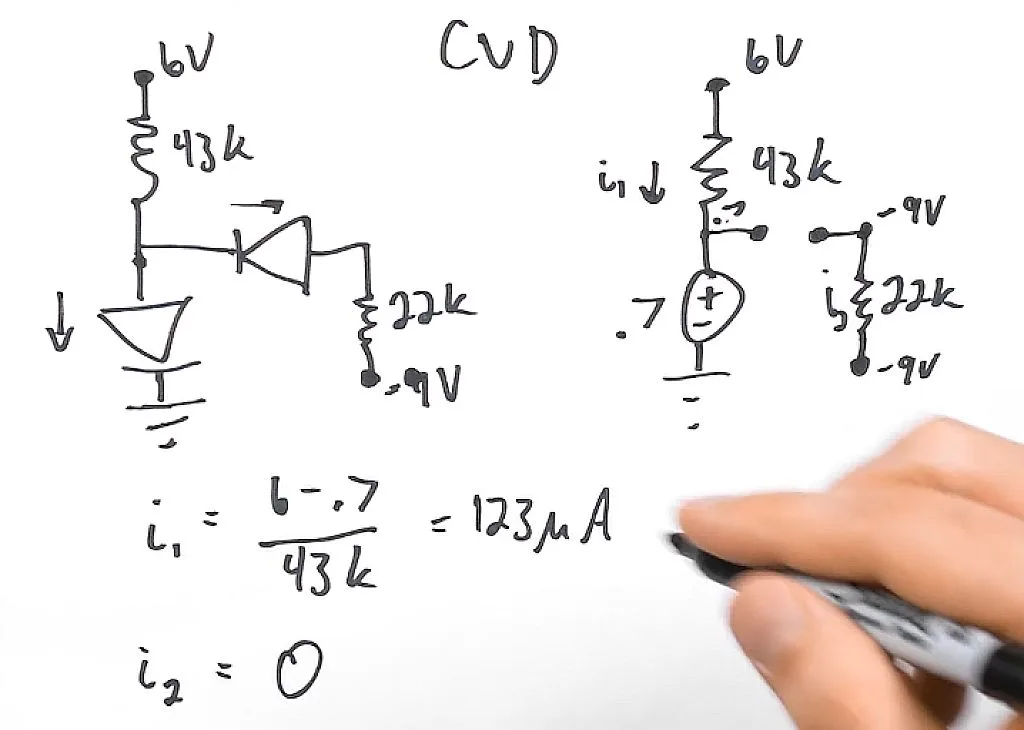 CVD
6V
43k
22k
-9V
6V
i₁ ↓
43k
.7
-9V
.7
+
-
22k
-9V
i₁ = 6-.7 / 43k = 123μA
i₂ = 0